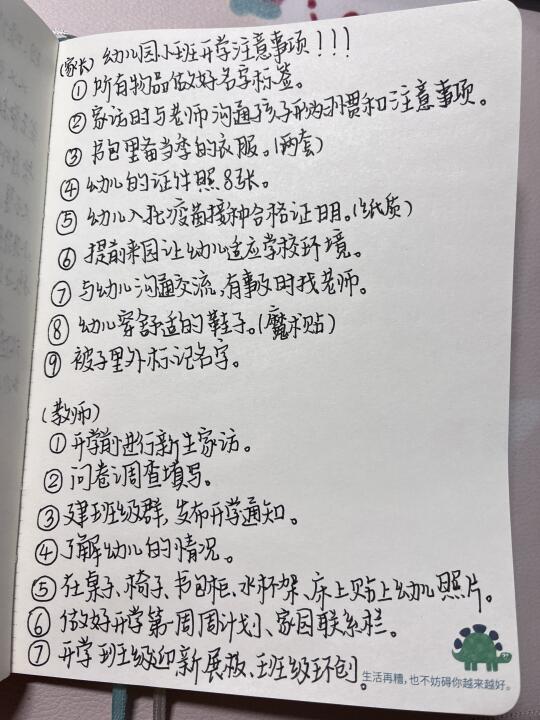 (家长) 幼儿园小班开学注意事项!!!
① 所有物品做好名字标签。
② 家访时与老师沟通孩子的习惯和注意事项。
③ 书包里备当季的衣服。(两套)
④ 幼儿的证件照8张。
⑤ 幼儿入托疫苗接种合格证明。(纸质)
⑥ 提前来园让幼儿适应学校环境。
⑦ 与幼儿沟通交流,有事及时找老师。
⑧ 幼儿穿舒适的鞋子。(魔术贴)
⑨ 被子里外标记名字。
(教师)
① 开学前进行新生家访。
② 问卷调查填写。
③ 建班级群,发布开学通知。
④ 了解幼儿的情况。
⑤ 在桌子、椅子、书包柜、水杯架、床上贴上幼儿照片。
⑥ 做好开学第一周周计划、家园联系栏。
⑦ 开学班级迎新展板、班级环创。
生活再糟,也不妨碍你越来越好。